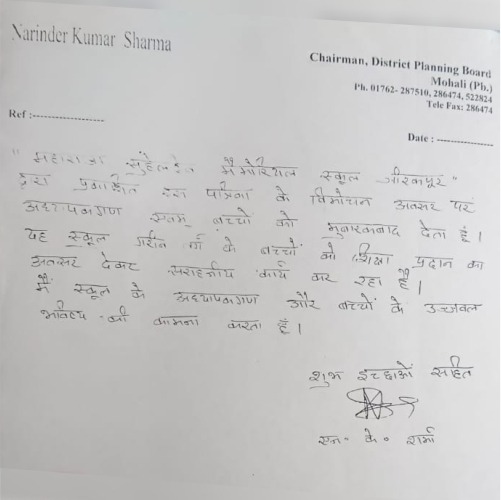 Narinder Kumar Sharma
Chairman, District Planning Board
Mohali (Pb.)
Ph. 01762- 287510, 286474, 522824
Tele Fax: 286474
Ref :-
Date :
" महाराजा सुहेलदेव मैमोरियल स्कूल जीरकपुर "
द्वारा प्रकाशित इस पत्रिका के विमोचन अवसर पर
अध्यापकगण एवम् बच्चों को मुबारकबाद देता हूँ।
यह स्कूल गरीब वर्ग के बच्चों को शिक्षा प्रदान का
अवसर देकर सराहनीय कार्य कर रहा है।
मैं स्कूल के अध्यापकगण और बच्चों के उज्जवल
भविष्य की कामना करता हूँ।
शुभ इच्छाओं सहित
एन॰ के॰ शर्मा